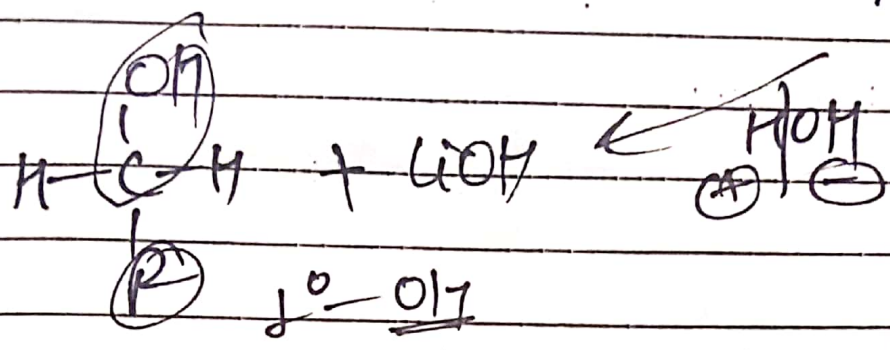 OH
H-C-H + LiOH ← H|OH
⊕ ⊖
R 1°-OH